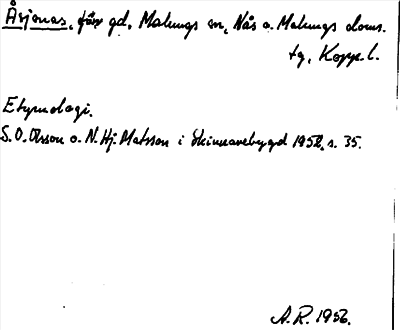 Årjonas, förr gd, Malungs sn, Nås o. Malungs doms.
tg, Kopp. l.
Etymologi.
S. O. Olsson o. N. Hj. Matsson i Skinnarebygd 1952, s. 35.
A. R. 1956.